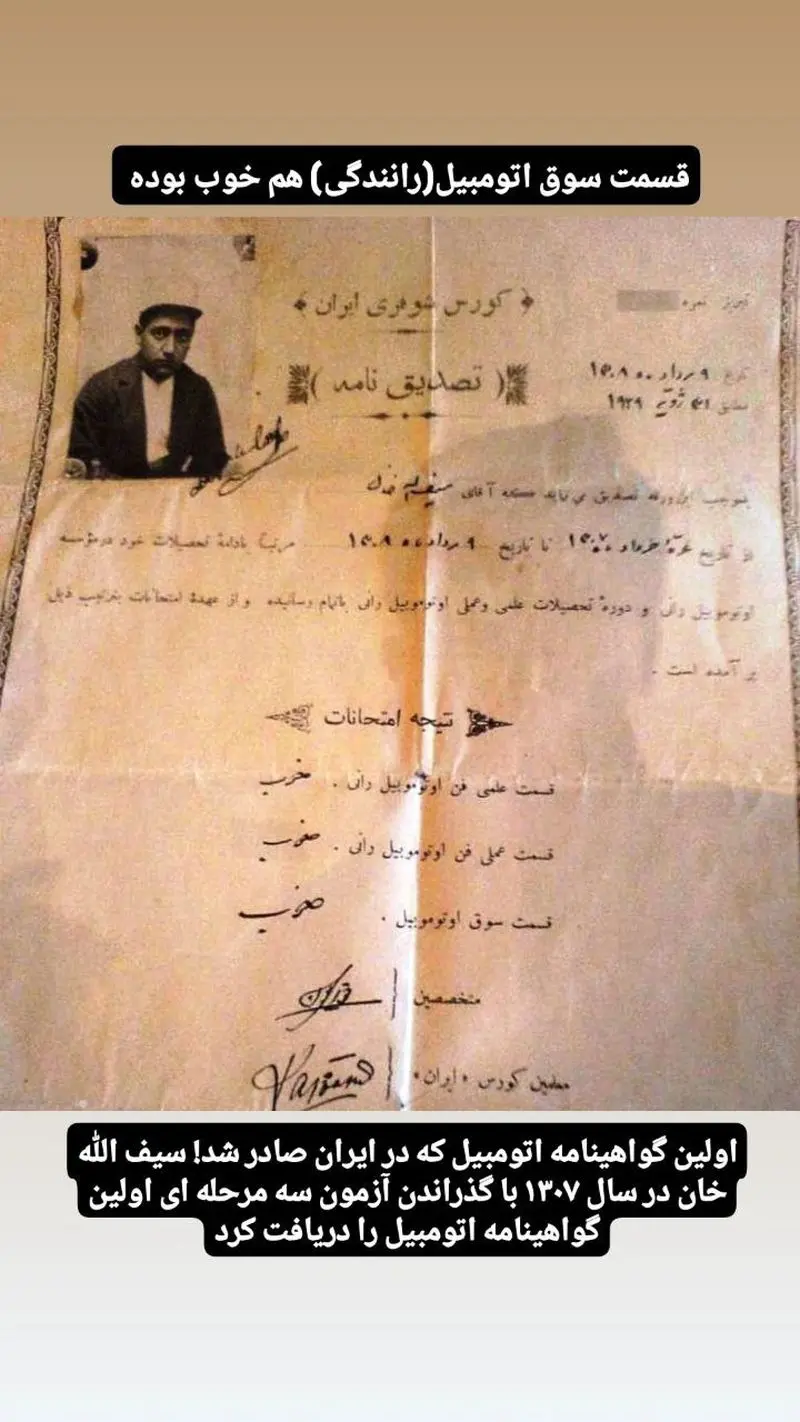 قسمت سوق اتومبیل(رانندگی) هم خوب بوده
کورس شوفری ایران
تبریز نمره
تصدیق نامه
تاریخ ۹ مرداد ماه ۱۳۰۸
مطابق ۳۱ ژوئیه ۱۹۲۹
بموجب این ورقه تصدیق می نماید که آقای سیف اله خان
از تاریخ خرداد ۱۳۰۷ تا تاریخ ۹ مرداد ماه ۱۳۰۸ مرتباً بادامهٔ تحصیلات خود در مؤسسه
اوتوموبیل رانی و دورهٔ تحصیلات علمی وعملی اوتوموبیل رانی باتمام رسانیده و از عهدهٔ امتحانات بترتیب ذیل
بر آمده است .
نتیجه امتحانات
قسمت علمی فن اوتوموبیل رانی . خوب
قسمت عملی فن اوتوموبیل رانی . خوب
قسمت سوق اوتوموبیل . خوب
متخصصین
معلمین کورس «ایران»
اولین گواهینامه اتومبیل که در ایران صادر شد! سیف الله
خان در سال ۱۳۰۷ با گذراندن آزمون سه مرحله ای اولین
گواهینامه اتومبیل را دریافت کرد